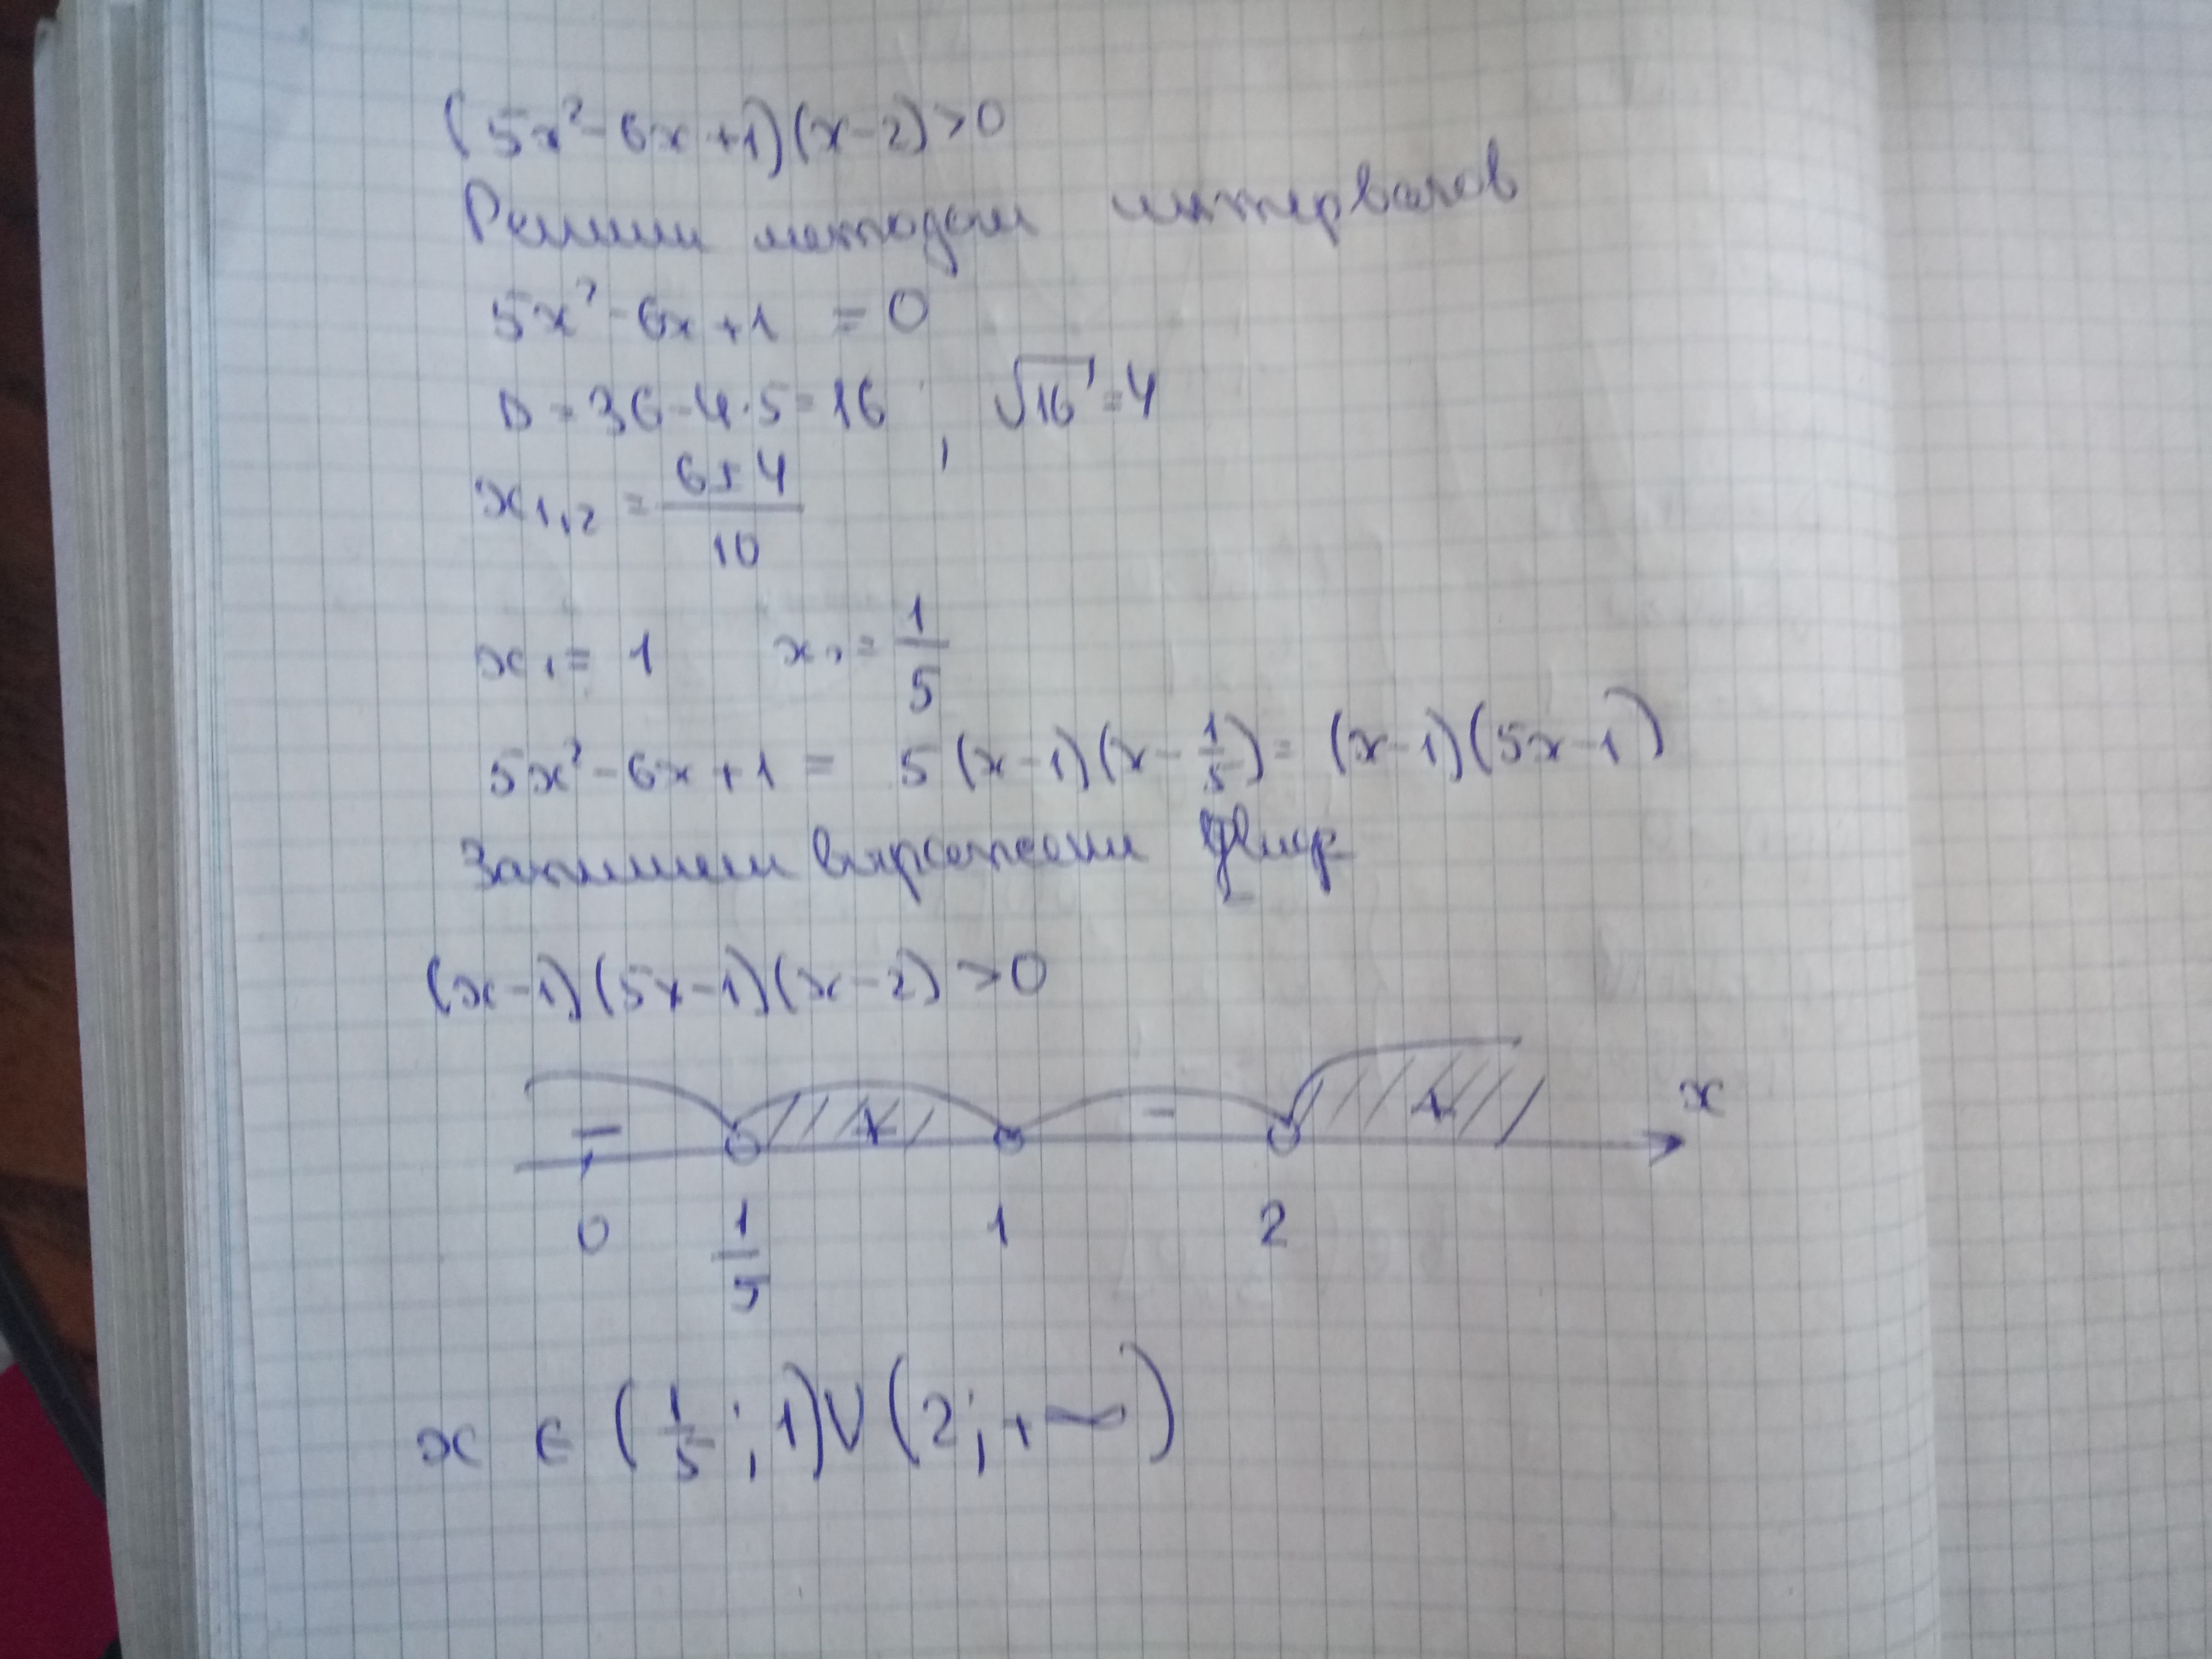 (5x²-6x+1)(x-2)>0
Решим методом интервалов
5x²-6x+1 = 0
D=36-4·5=16 , √16=4
x₁,₂ = (6±4)/10
x₁ = 1 x₂ = 1/5
5x²-6x+1 = 5(x-1)(x-1/5) = (x-1)(5x-1)
Запишем выражение
(x-1)(5x-1)(x-2)>0
- + - + x
0 1/5 1 2
x ∈ (1/5; 1)∪(2; +∞)